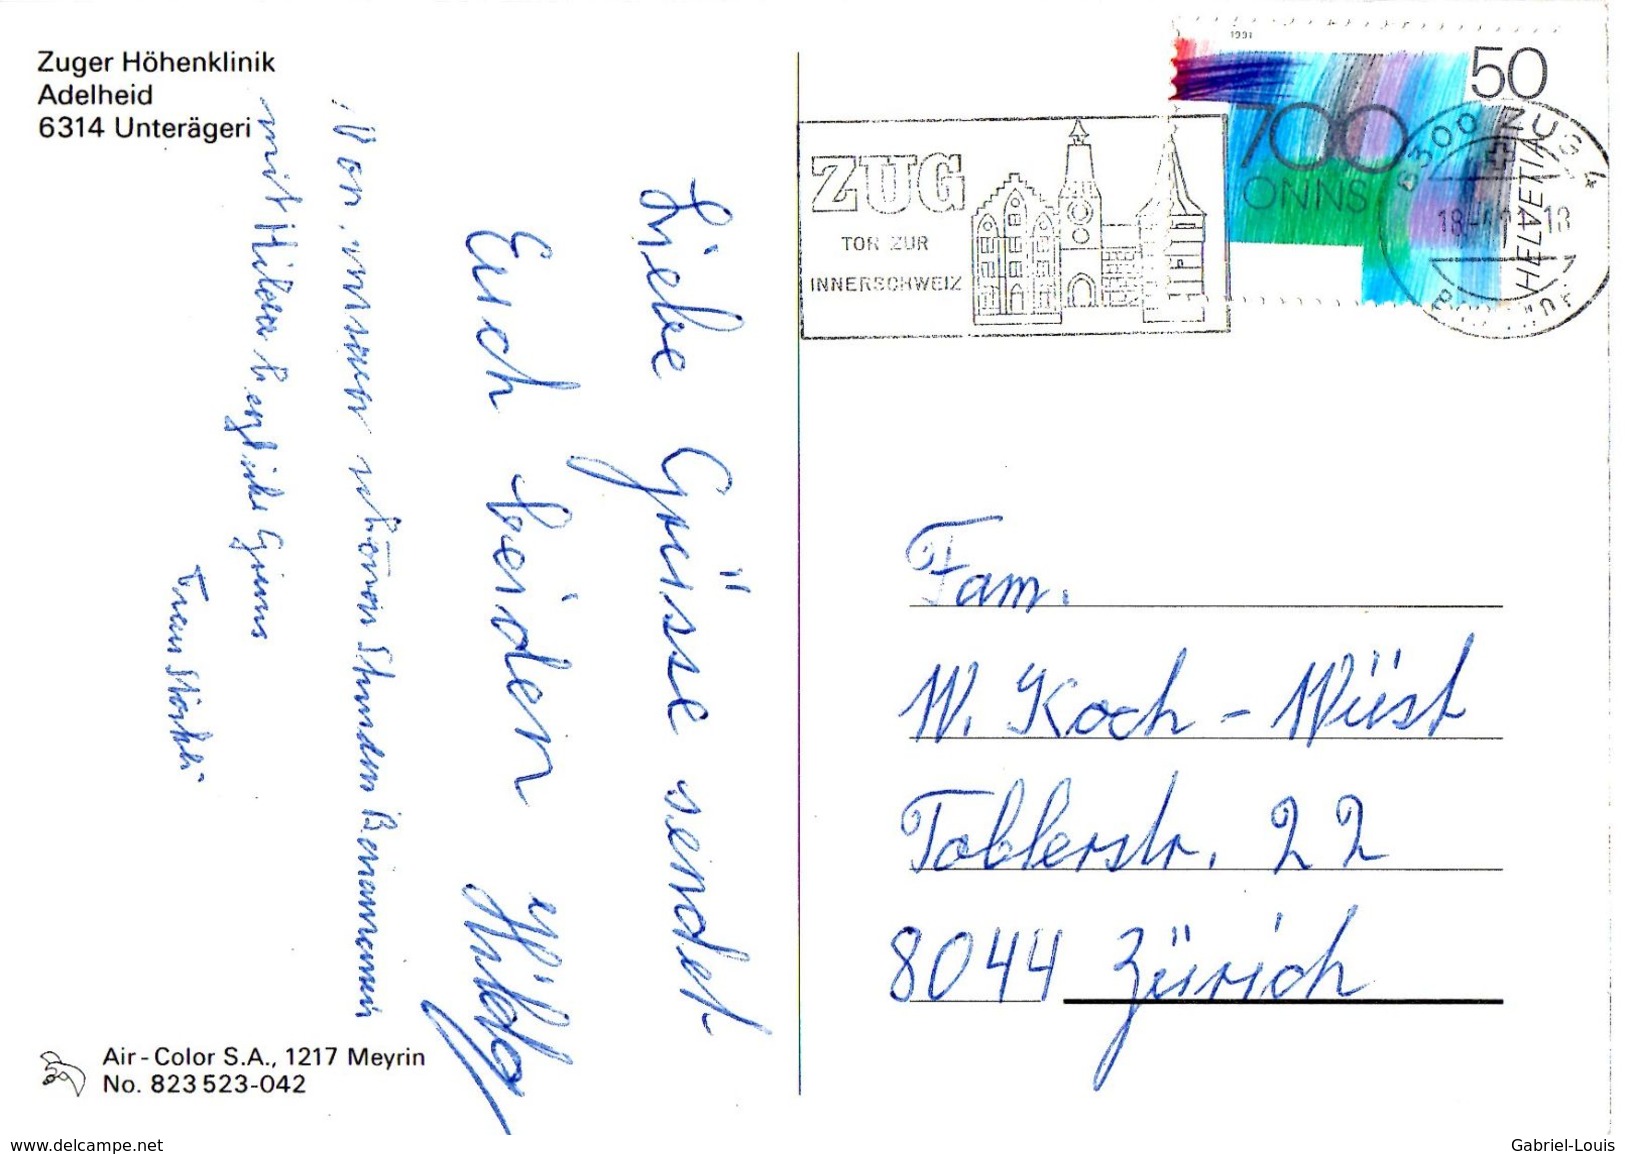 Zuger Höhenklinik
Adelheid
6314 Unterägeri
Liebe Grüsse sendet
Euch beiden
Von unserer schönen Stunden
mit Hilda herzliche Grüsse
Air-Color S.A., 1217 Meyrin
No. 823 523-042
1991
50
700
ONNS
HELVETIA
ZUG
TOR ZUR
INNERSCHWEIZ
6300 ZUG 1
Fam.
W. Koch - Wüst
Toblerstr. 22
8044 Zürich
www.delcampe.net
Gabriel-Louis